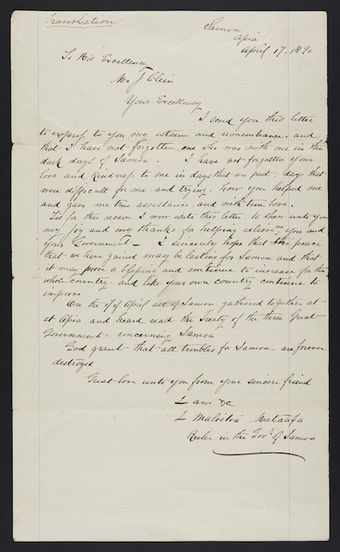 Translation
Samoa
Apia
April 17. 1890
To His Excellency
Mr J Klein
Your Excellency
I send you this letter
to express to you my esteem and remembrance, and
that I have not forgotten one who was with me in the
dark days of Samoa. I have not forgotten your
love and kindness to me in days that are past, days that
were difficult for me and trying, how you helped me
and gave me true assistance and with true love.
Tis for this reason I now write this letter, to show unto you
my joy and my thanks for helping relieve you and
your Government — I sincerely hope that the peace
that we have gained may be lasting for Samoa and that
it may prove a blessing and continue to increase for the
whole country and like your own country continue to
improve
On the of April all of Samoa gathered together at
at Apia and heard read the Treaty of the three Great
Governments concerning Samoa
God grant that all troubles for Samoa are forever
destroyed
Great love unto you from your sincere friend
I am &c
I Malietoa Mataafa
Ruler in the Govt of Samoa